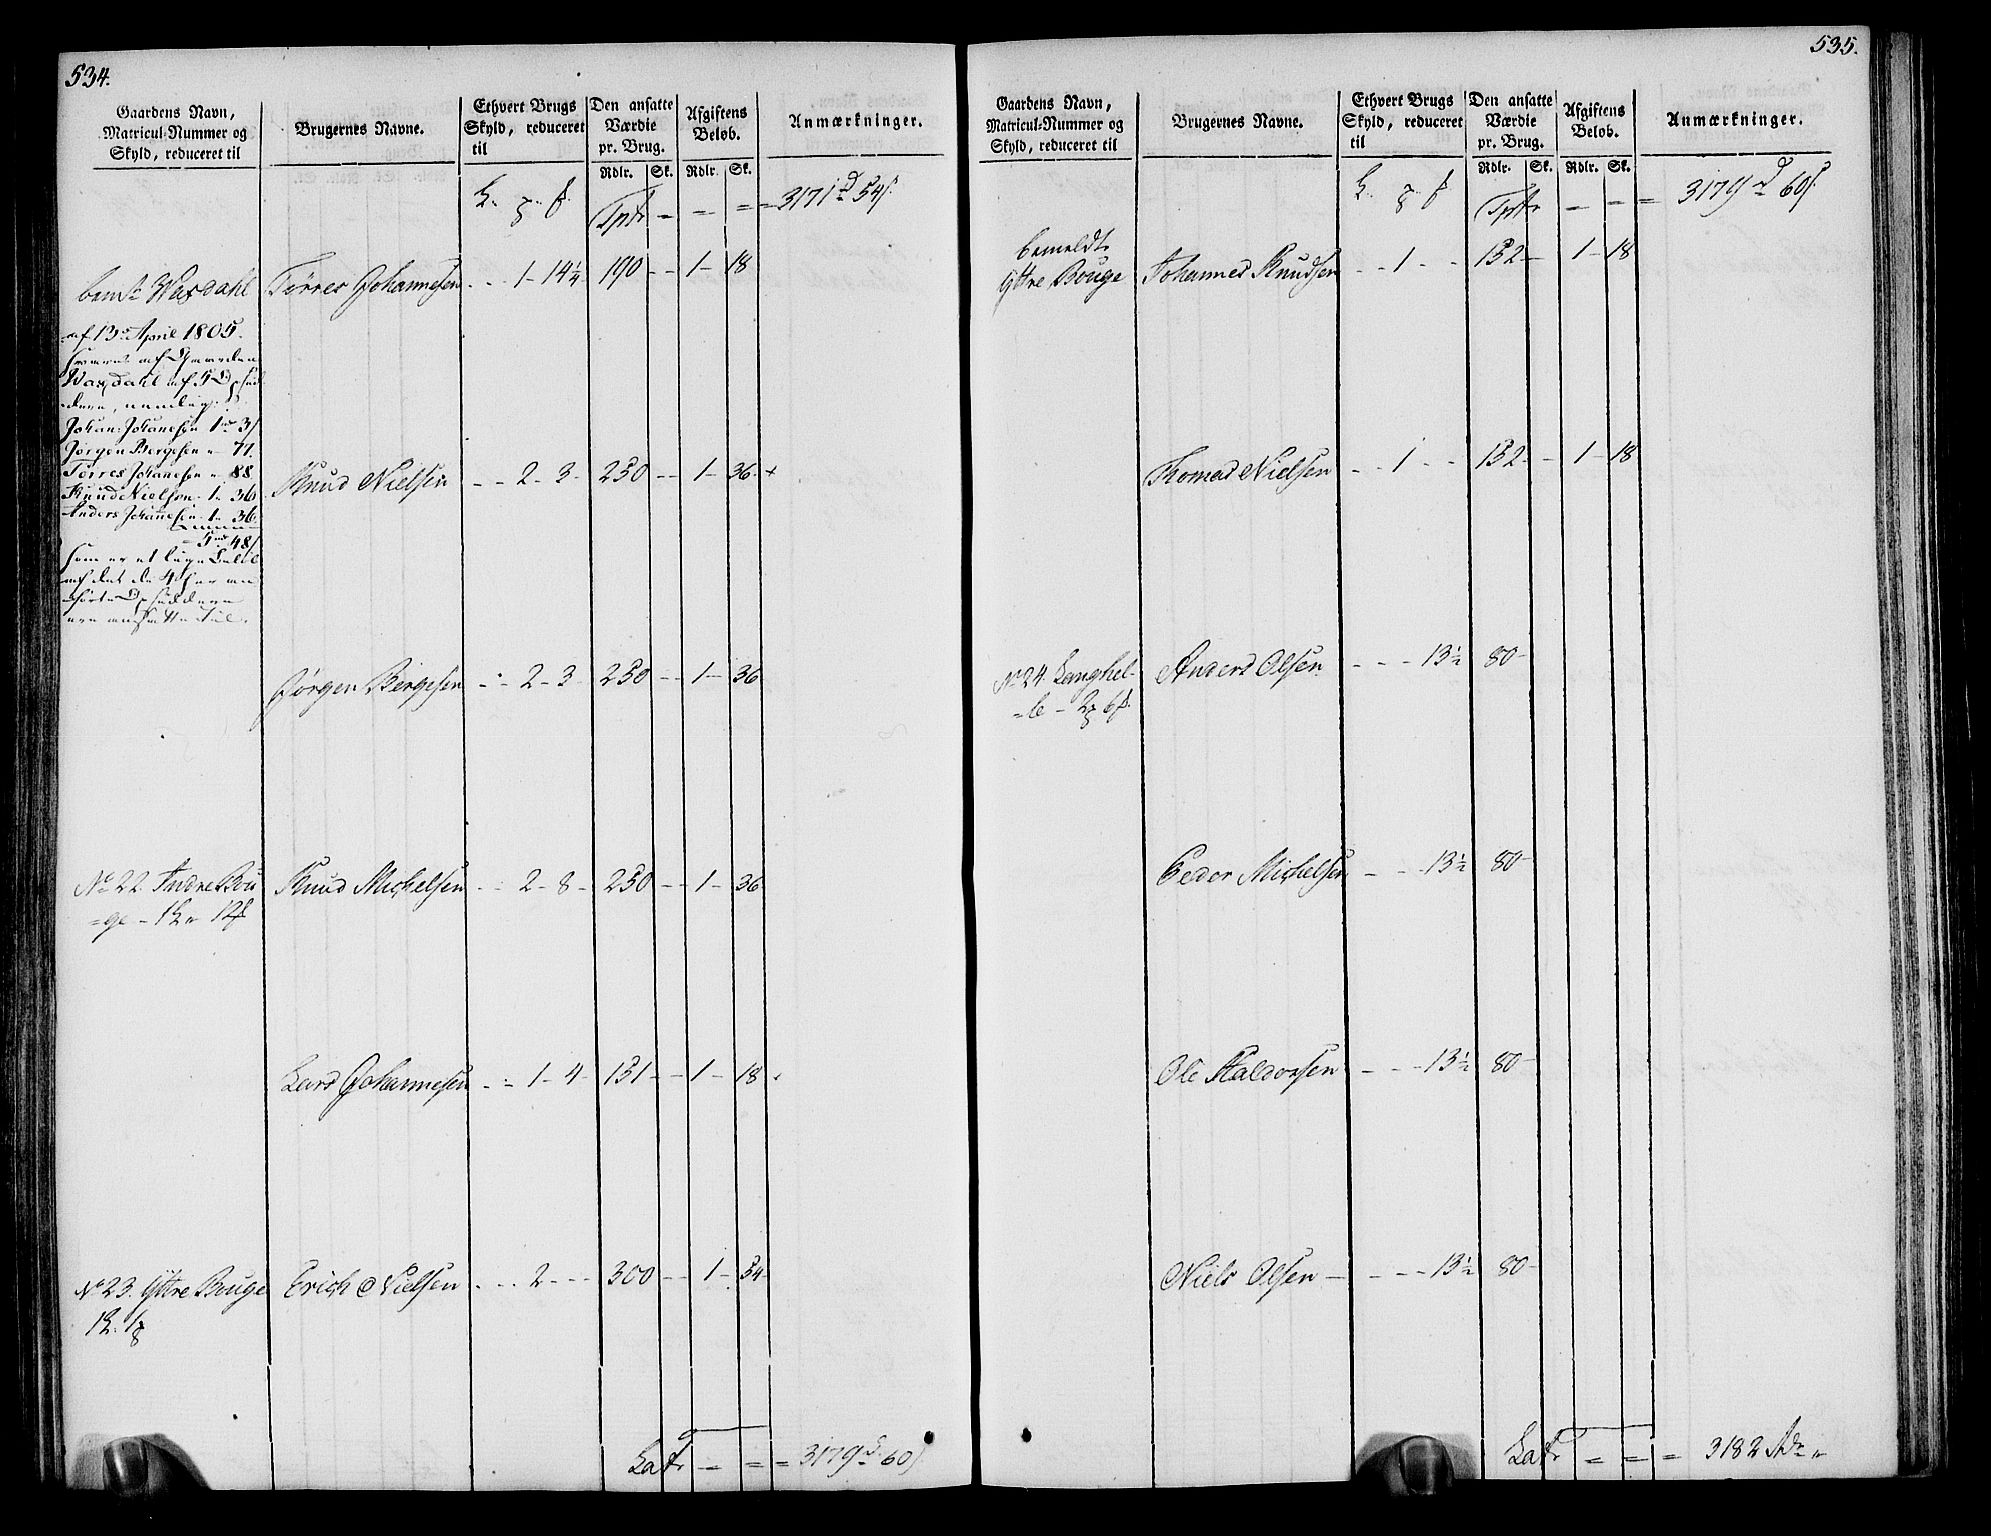 534.
Gaardens Navn,
Matricul-Nummer og
Skyld, reduceret til
Brugernes Navne.
Ethvert Brugs
Skyld, reduceret
til
Den ansatte
Værdie
pr. Brug.
Rdlr. Sk.
Afgiftens
Beløb.
Rdlr. Sk.
Anmærkninger.
Tptr - - = = 3171 d 54 s
bemt Waxdahl Tørres Johannesen - - 1 - 14¼ 190 - - 1 - 18
af 13 April 1805.
Waxdahl af 5 Opsid
dere, nemlig:
Johan: Johanesen 1 3 s
Jørgen Bergesen " 77.
Tørres Johanesen " 88.
Knud Nielsen 1 " 36
Anders Johannesen 1 " 36
5 48 s
som er et lige Beløb
af det de 4 her an
førte Opsiddere
ere ansatte til.
Knud Nielsen - - 2 - 3 - 250 - - 1 - 36 +
Jørgen Bergesen - - 2 - 3 250 - - 1 - 36
No 22. Indre Bou Knud Michelsen - - 2 - 8 - 250 - - 1 - 36
=ge - 1 L " 12
Lars Johannesen - - 1 - 4 - 131 - - 1 - 18
No 23. Yttre Bouge Erich Nielsen - - - 2 - - - 300 - - 1 - 54
1 L. 1
Latr - = = 3179 d 60 s
535.
Gaardens Navn,
Matricul-Nummer og
Skyld, reduceret til
Brugernes Navne.
Ethvert Brugs
Skyld, reduceret
til
Den ansatte
Værdie
pr. Brug.
Rdlr. Sk.
Afgiftens
Beløb.
Rdlr. Sk.
Anmærkninger.
Tptr - - = 3179 d 60 s
bemeldt
Yttre Bouge Johannes Knudsen - - 1 - - 152 - 1 - 18
Thomas Nielsen - - 1 - - 152 - - 1 - 18
No 24. Langhel- Anders Olsen - - - 13½ 80 -
=le - 2 6
Peder Michelsen - - - 13½ 80 -
Ole Haldorsen - - - 13½ 80 -
Niels Olsen - - - - 13½ 80 -
Latr = = = 3182 "